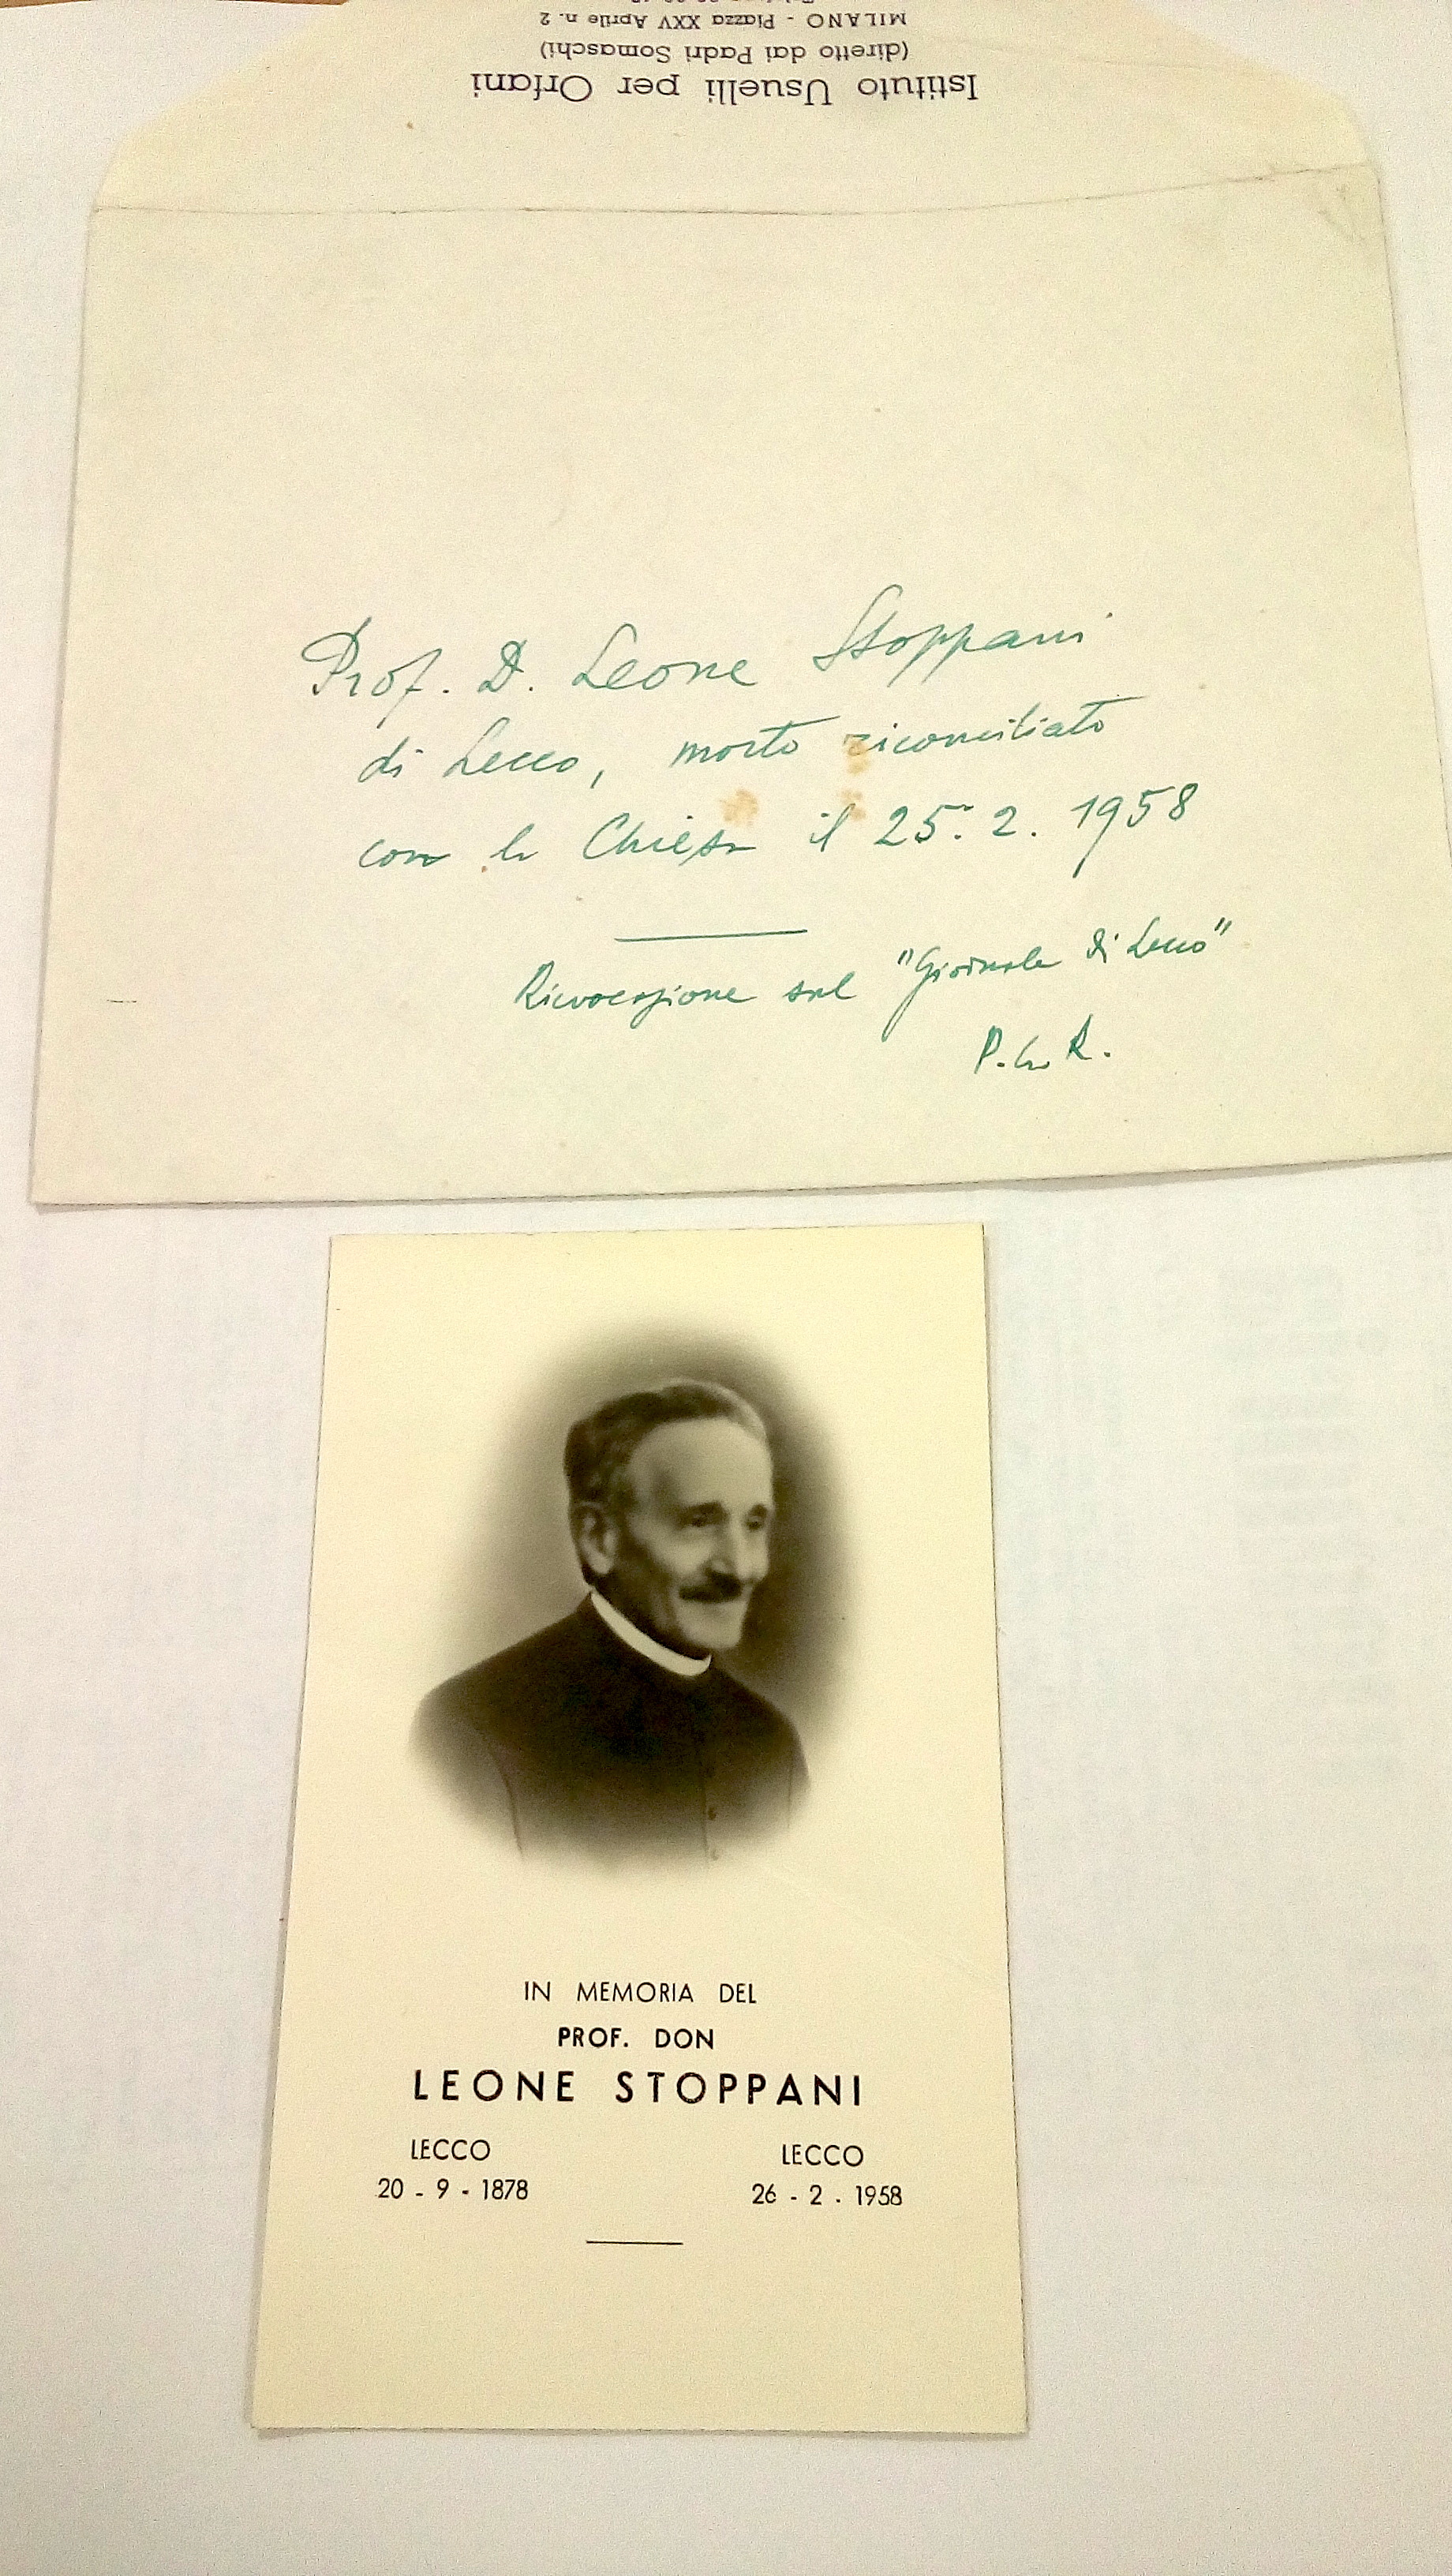 Istituto Usuelli per Orfani
(diretto dai Padri Somaschi)
MILANO - Piazza XXV Aprile n. 2
Prof. D. Leone Stoppani
di Lecco, morto riconciliato
con la Chiesa il 25. 2. 1958
Rievocazione sul "Giornale di Lecco"
IN MEMORIA DEL
PROF. DON
LEONE STOPPANI
LECCO
20 - 9 - 1878
LECCO
26 - 2 - 1958